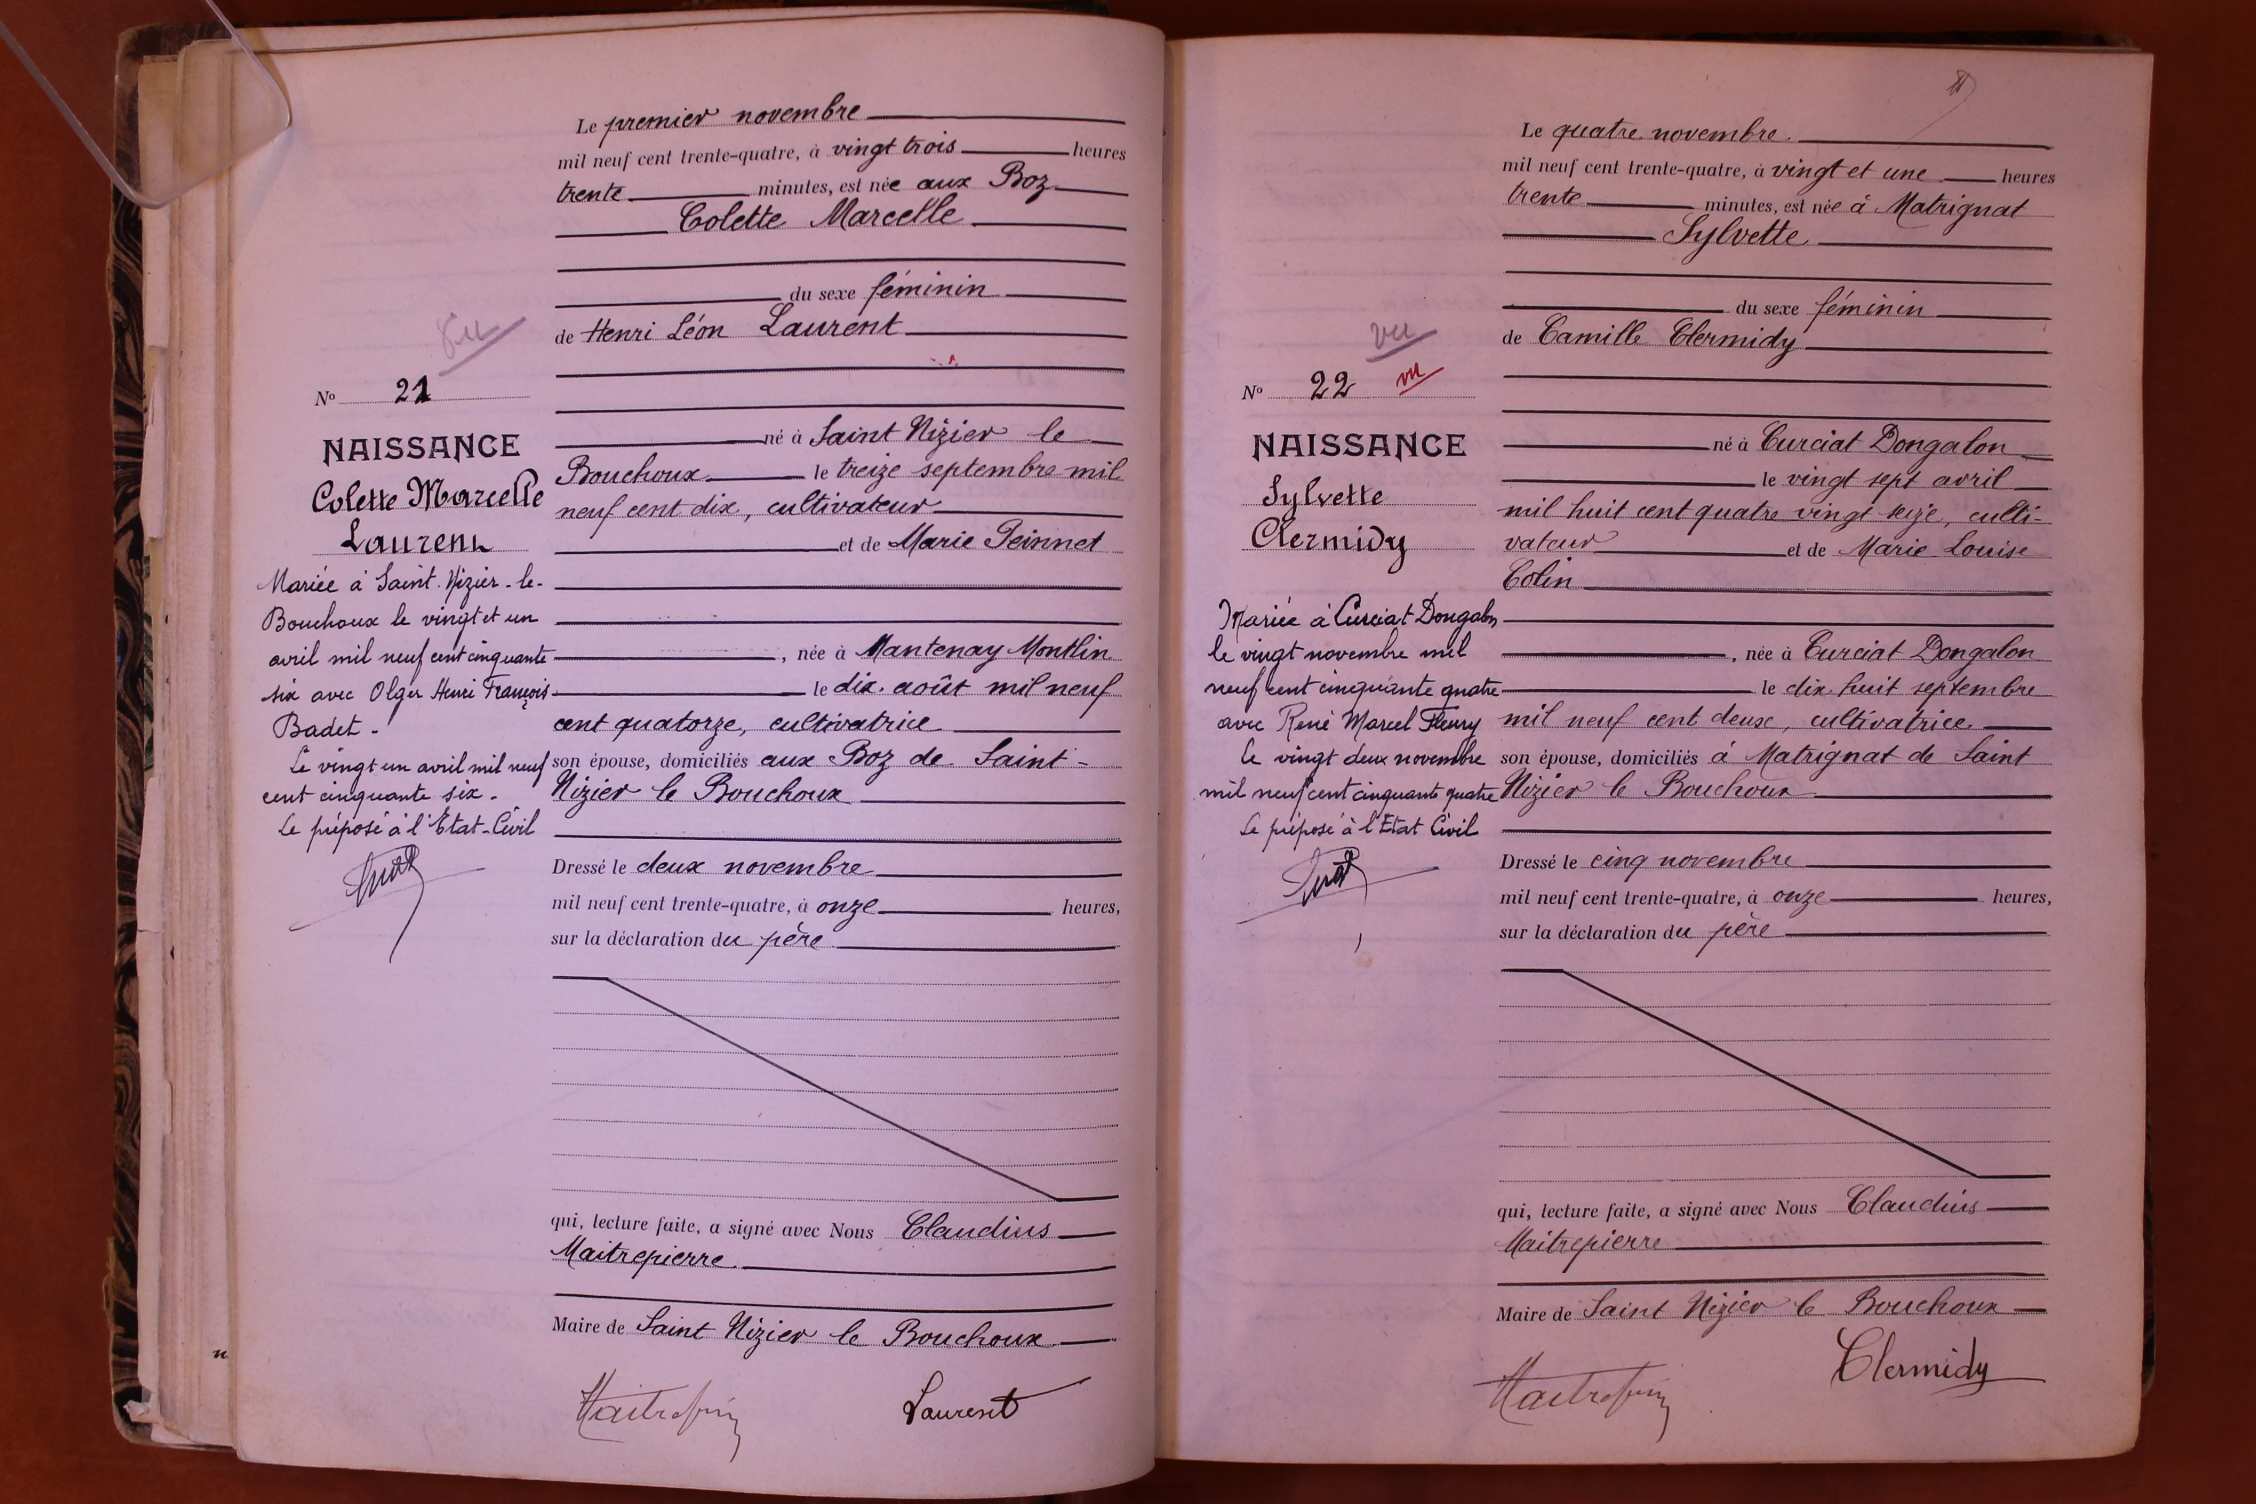 Le premier novembre
mil neuf cent trente-quatre, à vingt trois heures
trente minutes, est née aux Boz
Colette Marcelle
du sexe féminin
de Henri Léon Laurent
né à Saint Nizier le
Bouchoux le treize septembre mil
neuf cent dix, cultivateur
et de Marie Peinnet
, née à Mantenay Montlin
le dix août mil neuf
cent quatorze, cultivatrice
son épouse, domiciliés aux Boz de Saint-
Nizier le Bouchoux
Dressé le deux novembre
mil neuf cent trente-quatre, à onze heures,
sur la déclaration du père
qui, lecture faite, a signé avec Nous Claudius
Maitrepierre
Maire de Saint Nizier le Bouchoux
Laurent
vu
No 21
NAISSANCE
Colette Marcelle
Laurent
Mariée à Saint-Nizier-le-
Bouchoux le vingt et un
avril mil neuf cent cinquante
six avec Olger Henri François
Badet -
Le vingt un avril mil neuf
cent cinquante six -
Le préposé à l'Etat-Civil
Le quatre novembre
mil neuf cent trente-quatre, à vingt et une heures
trente minutes, est née à Matrignat
Sylvette
du sexe féminin
de Camille Clermidy
né à Curciat Dongalon
le vingt sept avril
mil huit cent quatre vingt seize, culti-
vateur et de Marie Louise
Colin
, née à Curciat Dongalon
le dix huit septembre
mil neuf cent deux, cultivatrice
son épouse, domiciliés à Matrignat de Saint
Nizier le Bouchoux
Dressé le cinq novembre
mil neuf cent trente-quatre, à onze heures,
sur la déclaration du père
qui, lecture faite, a signé avec Nous Claudius
Maitrepierre
Maire de Saint Nizier le Bouchoux
Clermidy
vu
No 22 vu
NAISSANCE
Sylvette
Clermidy
Mariée à Curciat Dongalon
le vingt novembre mil
neuf cent cinquante quatre
avec René Marcel Fleury
Le vingt deux novembre
mil neuf cent cinquante quatre
Le préposé à l'Etat Civil